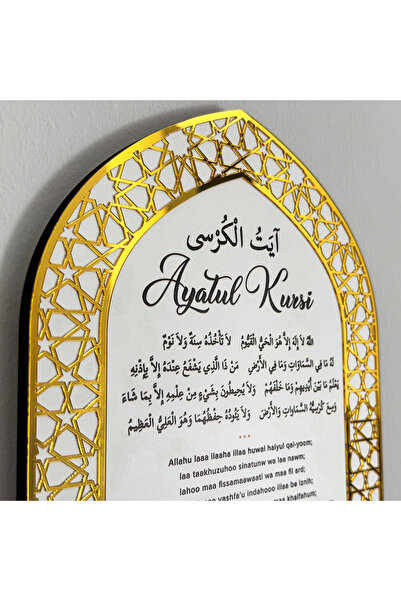 آيَتُ الْكُرْسِى
Ayatul Kursi
اَللّٰهُ لَا اِلٰهَ اِلَّا هُوَ الْحَيُّ الْقَيُّومُ لَا تَأْخُذُهُ سِنَةٌ وَلَا نَوْمٌ
لَهُ مَا فِي السَّمَاوَاتِ وَمَا فِي الْاَرْضِ مَنْ ذَا الَّذِي يَشْفَعُ عِنْدَهُ اِلَّا بِاِذْنِهِ
يَعْلَمُ مَا بَيْنَ اَيْدِيهِمْ وَمَا خَلْفَهُمْ وَلَا يُحِيطُونَ بِشَيْءٍ مِنْ عِلْمِهِ اِلَّا بِمَا شَاءَ
وَسِعَ كُرْسِيُّهُ السَّمَاوَاتِ وَالْاَرْضَ وَلَا يَئُودُهُ حِفْظُهُمَا وَهُوَ الْعَلِيُّ الْعَظِيمُ
Allahu laaa ilaaha illaa huwal haiyul qai-yoom;
laa taakhuzuhoo sinatunw wa laa nawm;
lahoo maa fissamaawaati wa maa fil ard;
yashfa'u indahooo illaa be iznih;
khalfahum;